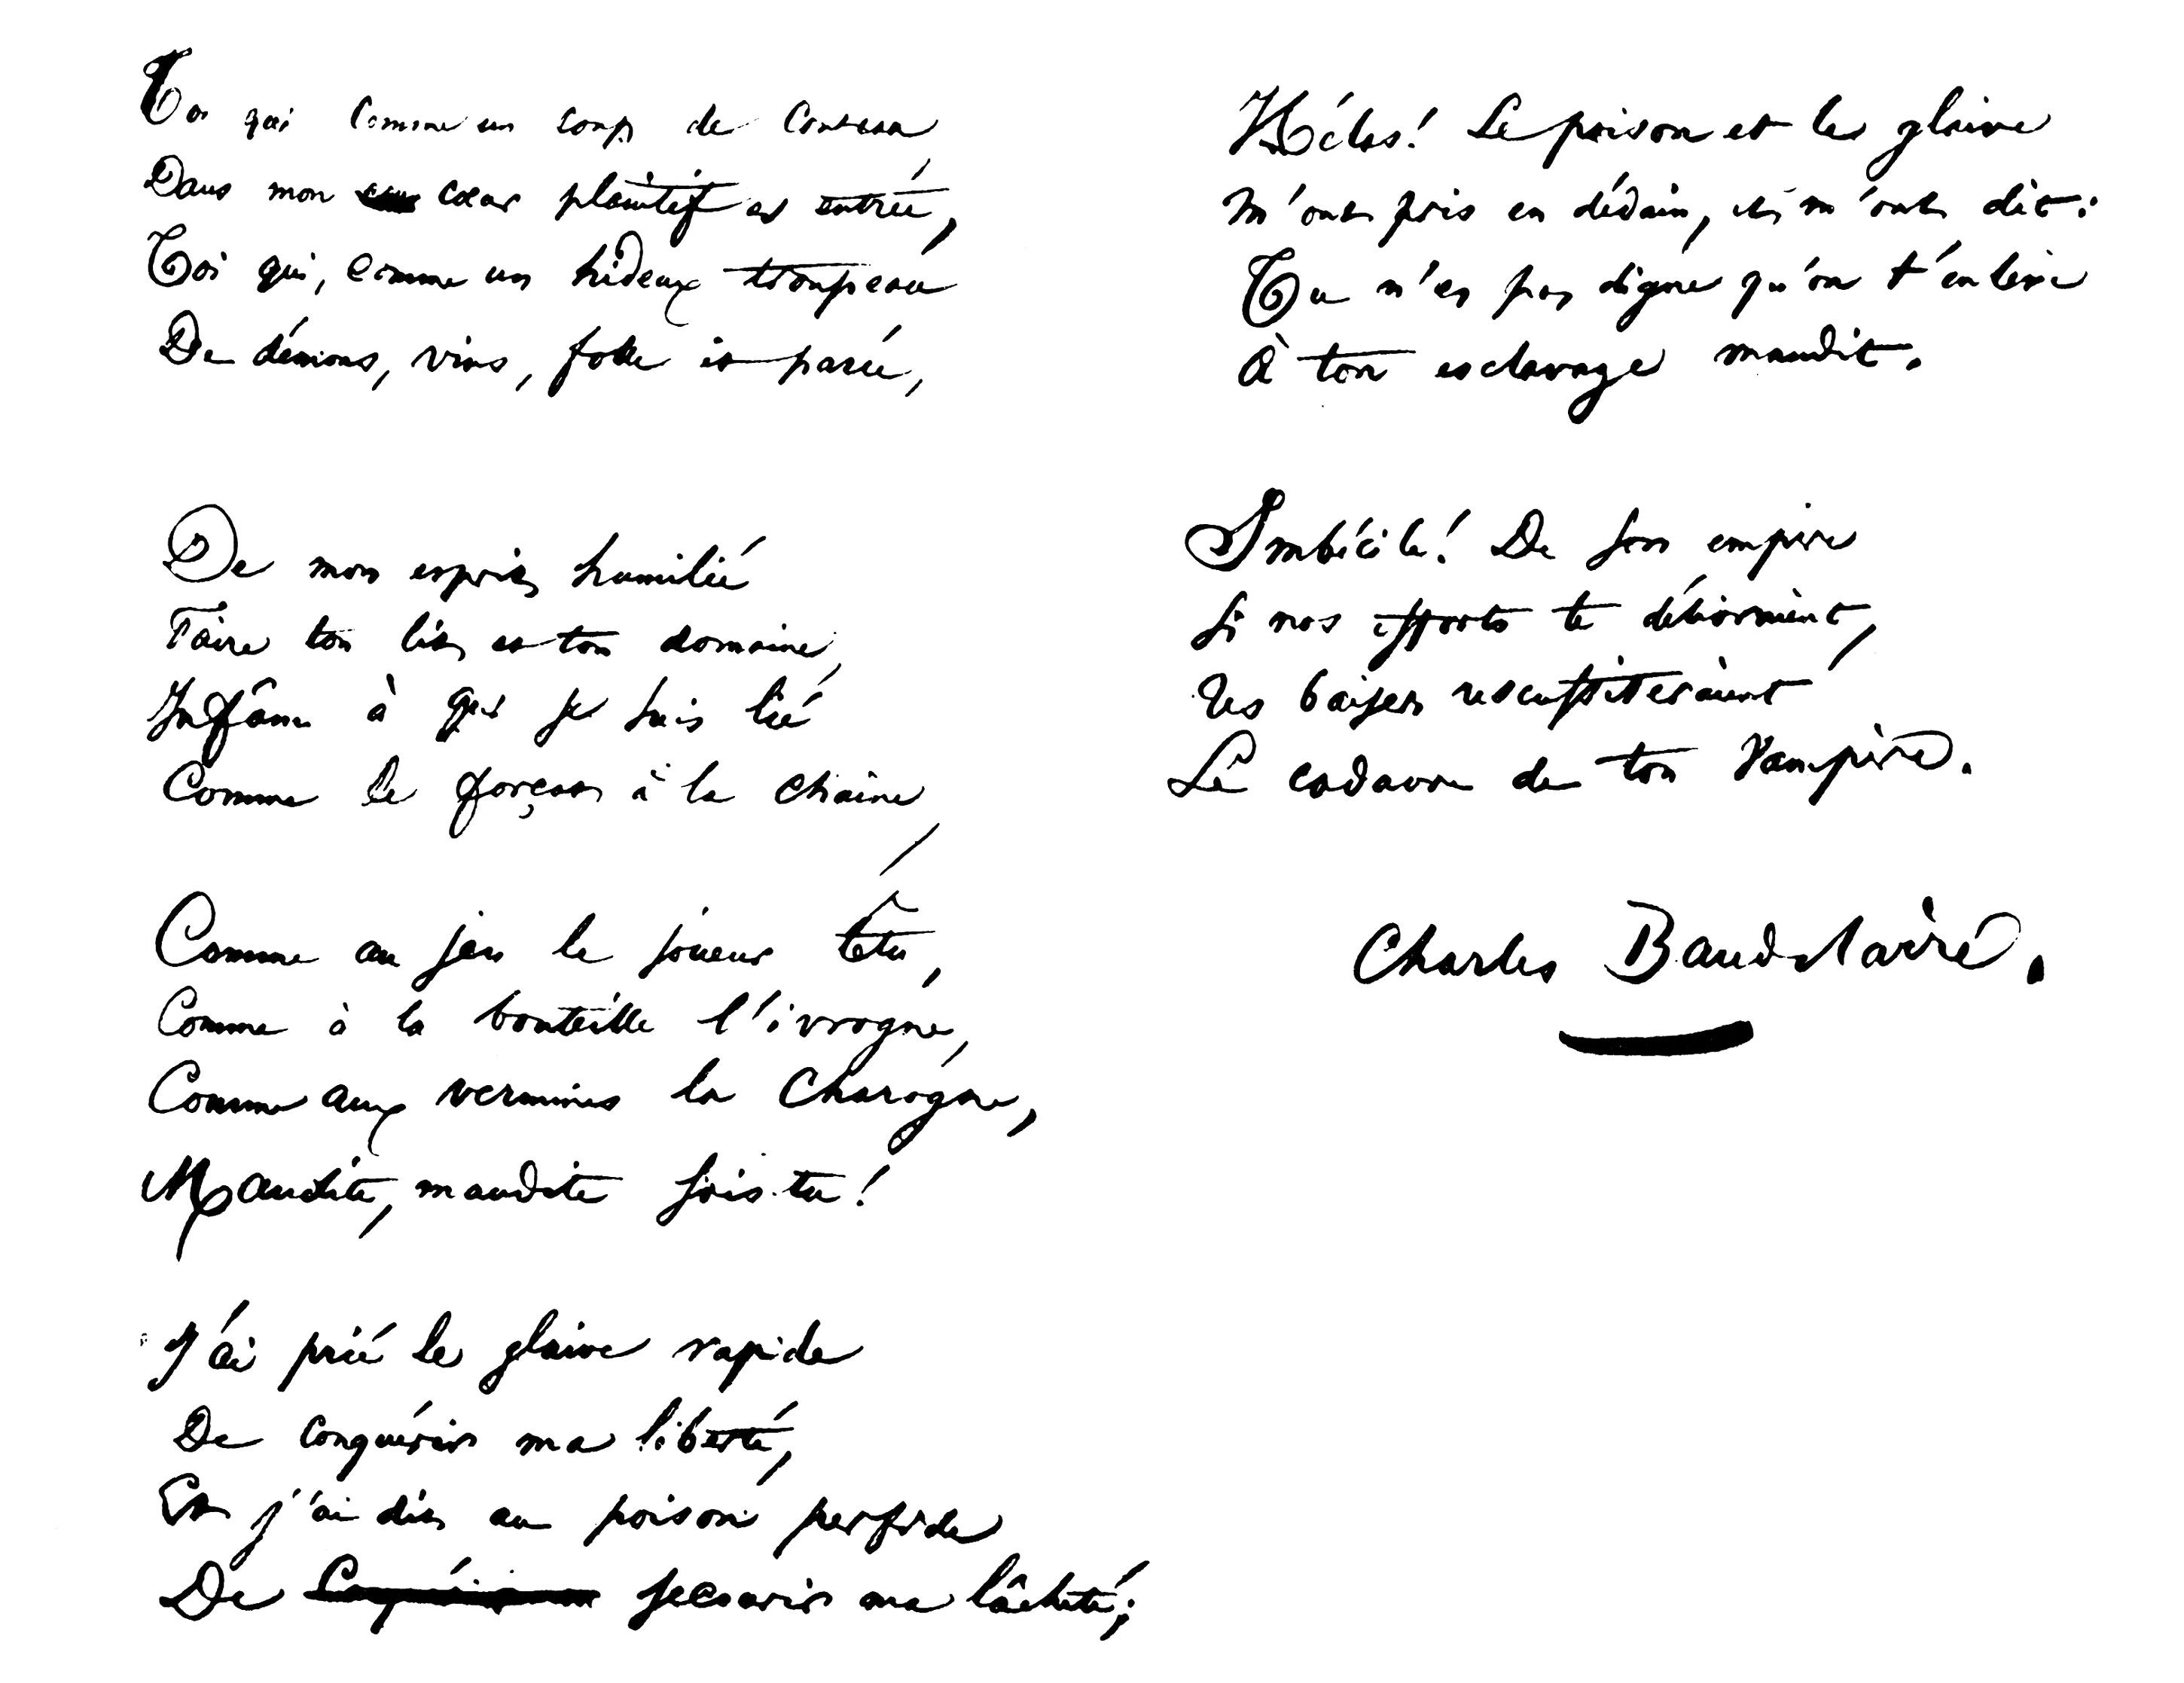 Toi qui comme un coup de couteau
Dans mon cœur plaintif es entrée,
Toi qui, comme un hideux troupeau
De démons, vins, folle et parée,
De mon esprit humilié
Faire ton lit et ton domaine,
Infâme à qui je suis lié
Comme le forçat à la chaîne,
Comme au jeu le joueur têtu,
Comme à la bouteille l'ivrogne,
Comme aux vermines la charogne,
Maudite, maudite sois-tu!
J'ai prié le glaive rapide
De conquérir ma liberté,
Et j'ai dit au poison perfide
De secourir ma lâcheté;
Hélas! Le poison et le glaive
M'ont pris en dédain, et m'ont dit:
Tu n'es pas digne qu'on t'enlève
À ton esclavage maudit.
Imbécile! De son empire
Si nos efforts te délivraient,
Tes baisers ressusciteraient
Le cadavre de ton Vampire.
Charles Baudelaire.